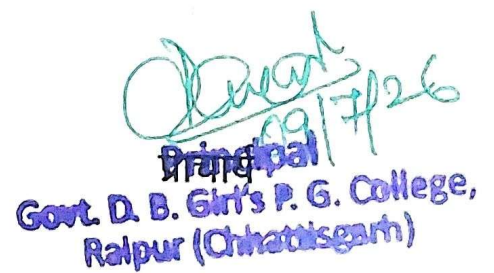 09/7/26
Principal
प्राचार्य
Govt. D. B. Girl's P. G. College,
Raipur (Chhattisgarh)